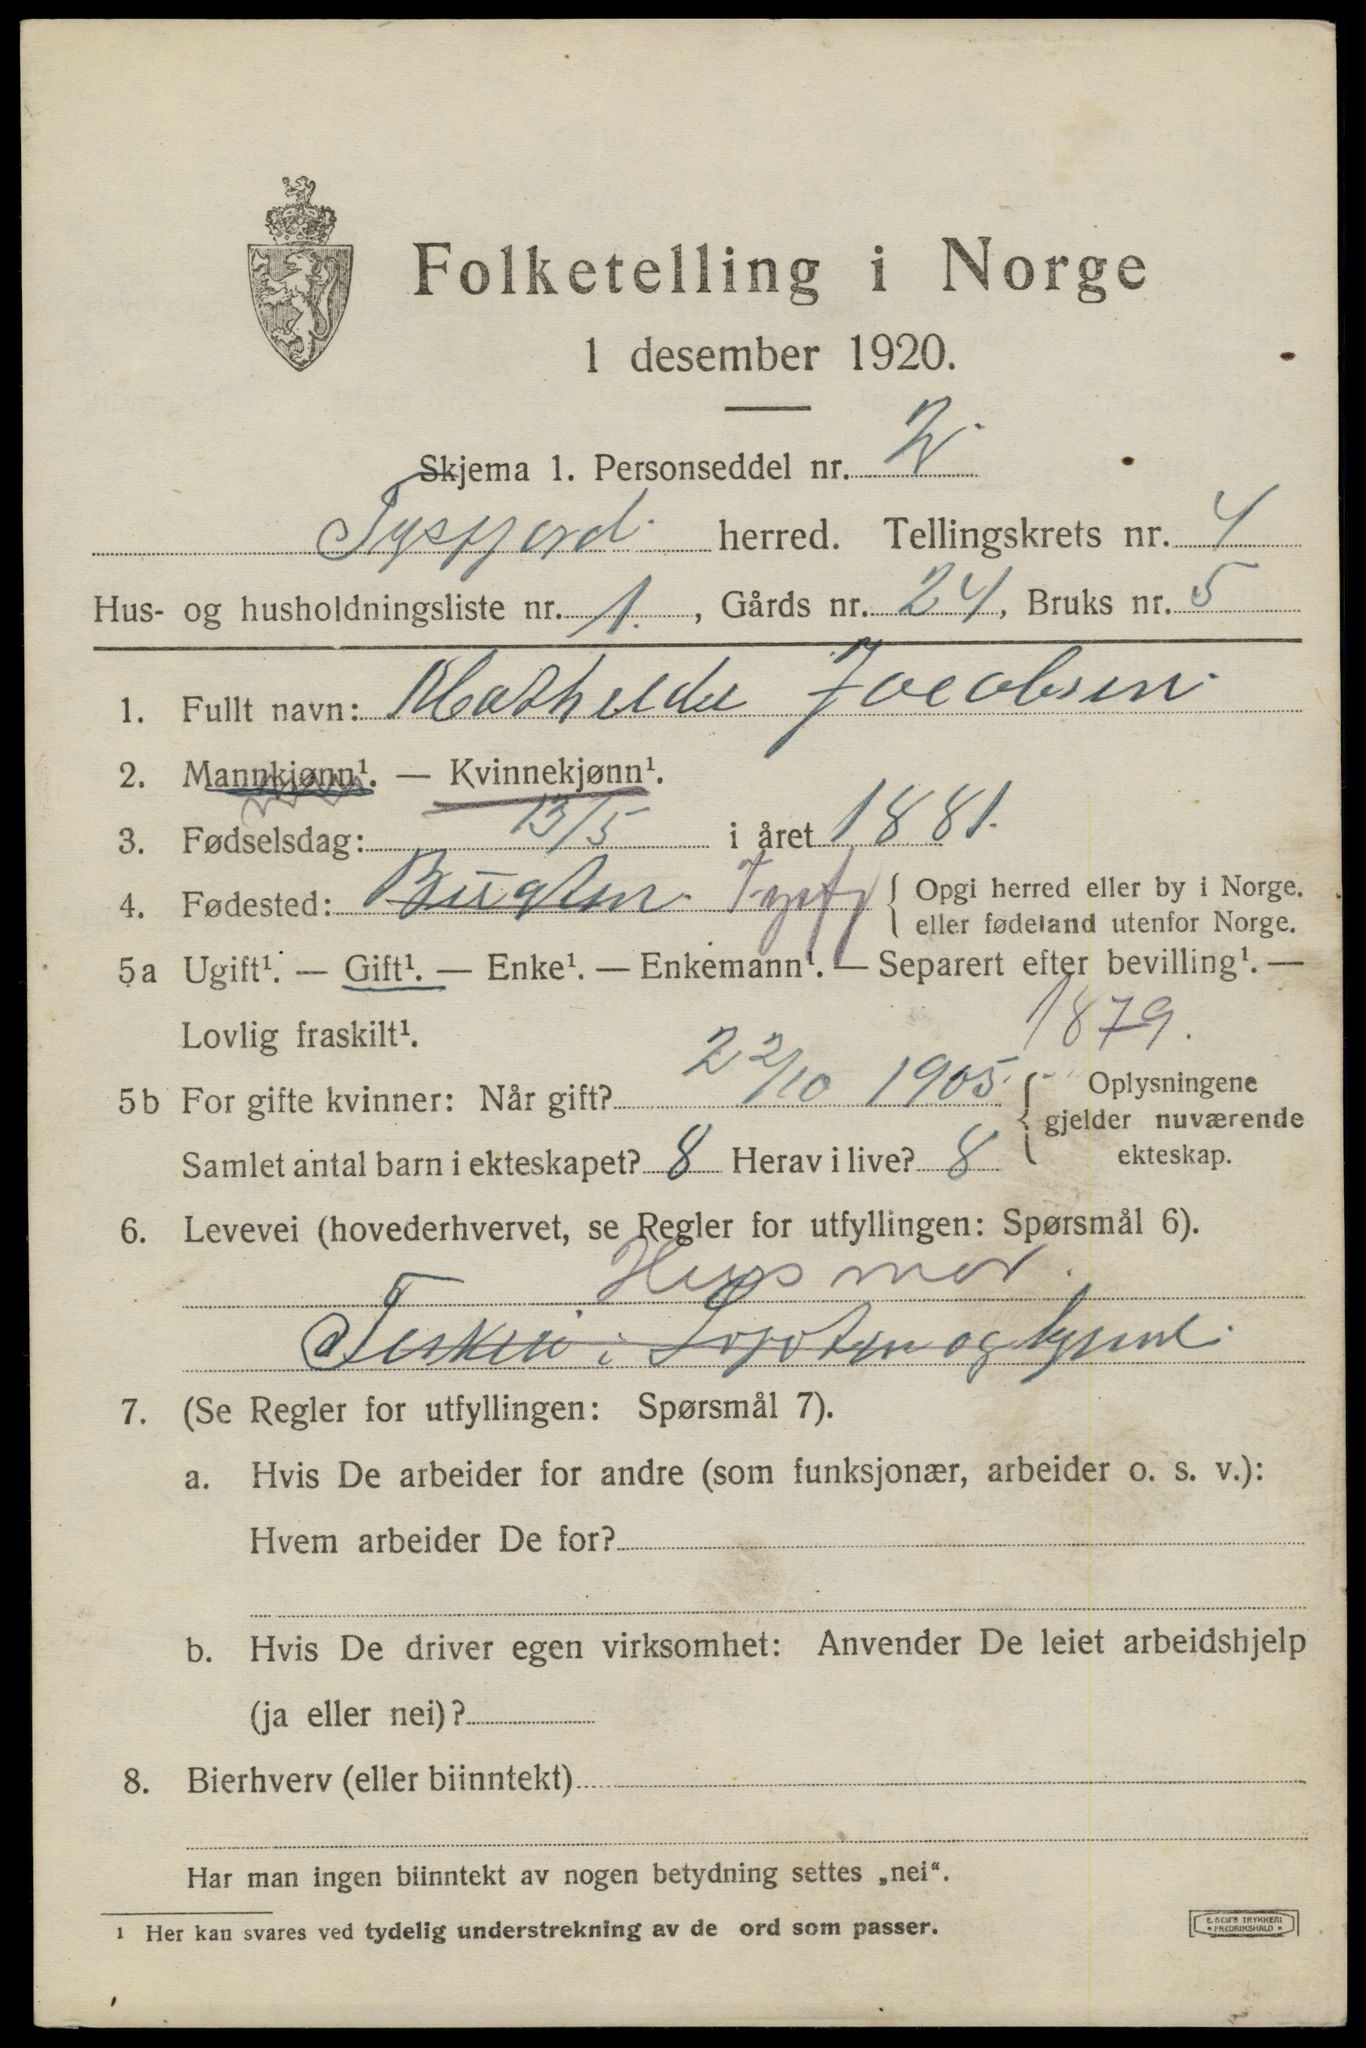 Folketelling i Norge
1 desember 1920.
Skjema 1. Personseddel nr. 2.
Tysfjord. herred. Tellingskrets nr. 4
Hus- og husholdningsliste nr. 1. , Gårds nr. 24, Bruks nr. 5
1. Fullt navn: Mathilde Jacobsen.
2. Mannkjønn¹. — Kvinnekjønn¹.
3. Fødselsdag: 13/5 i året 1881.
4. Fødested: Bugten. Tysfj { Opgi herred eller by i Norge.
eller fødeland utenfor Norge.
5a Ugift¹. — Gift¹. — Enke¹. — Enkemann¹. — Separert efter bevilling¹. —
Lovlig fraskilt¹. 1879.
5b For gifte kvinner: Når gift? 22/10 1905. { Oplysningene
gjelder nuværende
ekteskap.
Samlet antal barn i ekteskapet? 8 Herav i live? 8
6. Levevei (hovederhvervet, se Regler for utfyllingen: Spørsmål 6).
Husmor.
i Lofoten og
7. (Se Regler for utfyllingen: Spørsmål 7).
a. Hvis De arbeider for andre (som funksjonær, arbeider o. s. v.):
Hvem arbeider De for?
b. Hvis De driver egen virksomhet: Anvender De leiet arbeidshjelp
(ja eller nei)?
8. Bierhverv (eller biinntekt)
Har man ingen biinntekt av nogen betydning settes „nei“.
¹ Her kan svares ved tydelig understrekning av de ord som passer.
E. SEM'S TRYKKERI
FREDRIKSHALD